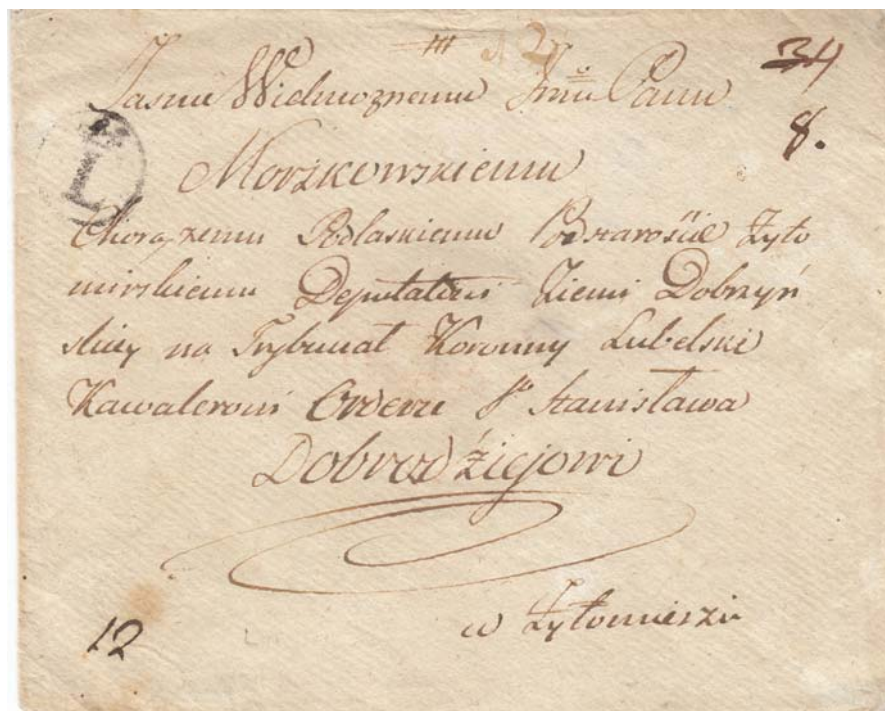 III 2 34
Jasnie Wielmoznemu Jmći Panu
8.
L
Morzkowskiemu
Chorązemu Podlaskiemu Podstarościě Zyto
mirskiemu Deputatowi Ziemi Dobrzyń
skiey na Trybunał Koronny Lubelski
Kawalerowi Orderu Sgo Stanisława
Dobrodźiejowi
w Zytomierzu
12